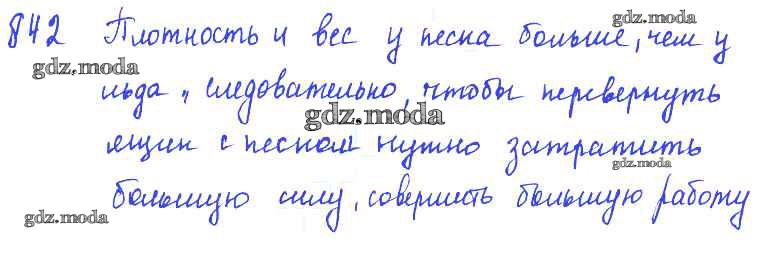 gdz.moda
842 Плотность и вес у песка больше, чем у
gdz.moda
льда, следовательно, чтобы перевернуть
gdz.moda
ящик с песком нужно затратить
gdz.moda
большую силу, совершить большую работу
gdz.moda